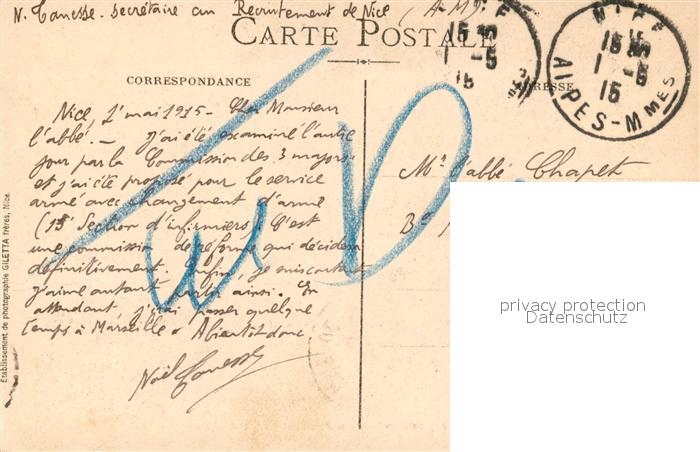 N. Canesse - secrétaire au Recrutement de Nice (A-M)
CARTE POSTALE
CORRESPONDANCE
ADRESSE
NICE
15 30
1 - 5
15
ALPES-MMES
Nice, 1er mai 1915 - Cher Monsieur
l'abbé. - J'ai été examiné l'autre
jour par la Commission des 3 majors
et j'ai été proposé pour le service
armé avec changement d'arme
(15e Section d'infirmiers) C'est
une commission de réforme qui décidera
définitivement. Enfin, je suis content
j'aime autant partir ainsi. En
attendant, j'irai passer quelque
temps à Marseille. A bientôt donc,
Noël Canesse
Mr l'abbé Chapet
Etablissement de photographie GILETTA frères, Nice.
privacy protection
Datenschutz